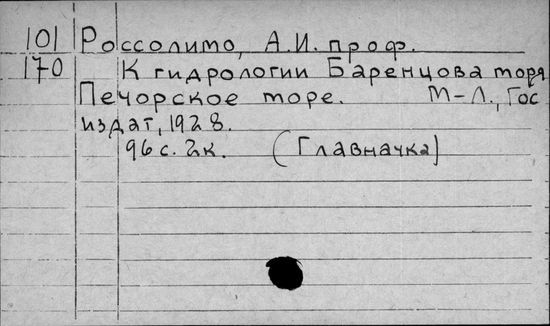 101 Россолимо, А.И. проф.
170 К гидрологии Баренцова моря
Печорское море. М-Л., Гос
издат, 1928.
96с. 2к. (Главначка)